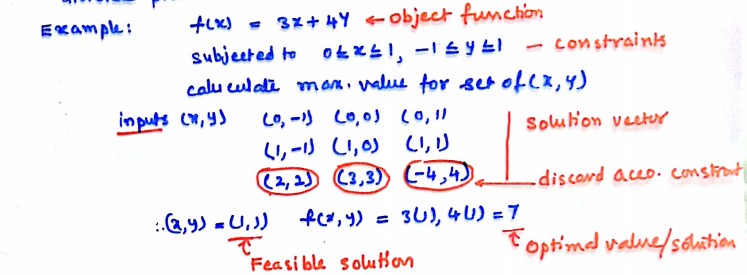 Example: f(x) = 3x + 4y ← object function
subjected to 0 ≤ x ≤ 1, -1 ≤ y ≤ 1 — constraints
calculate max. value for set of (x, y)
inputs (x, y) (0, -1) (0, 0) (0, 1) solution vector
(1, -1) (1, 0) (1, 1)
(2, 2) (3, 3) (-4, 4) discard acco. constraint
∴ (x, y) = (1, 1) f(x, y) = 3(1), 4(1) = 7
↑ optimal value/solution
Feasible solution